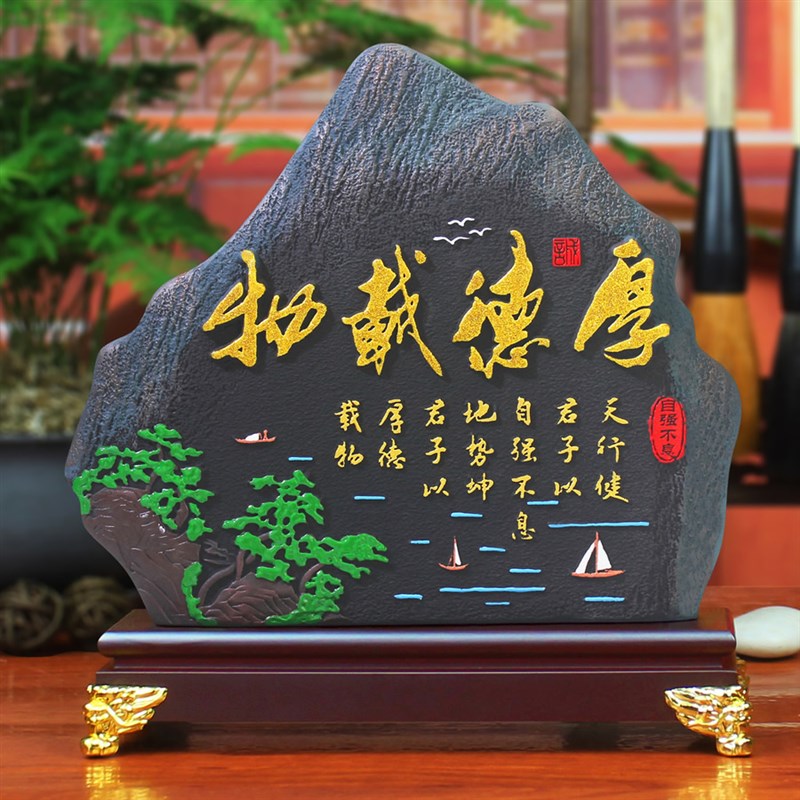 厚德載物
天行健
君子以
自强不息
地势坤
君子以
厚德
载物
自强不息